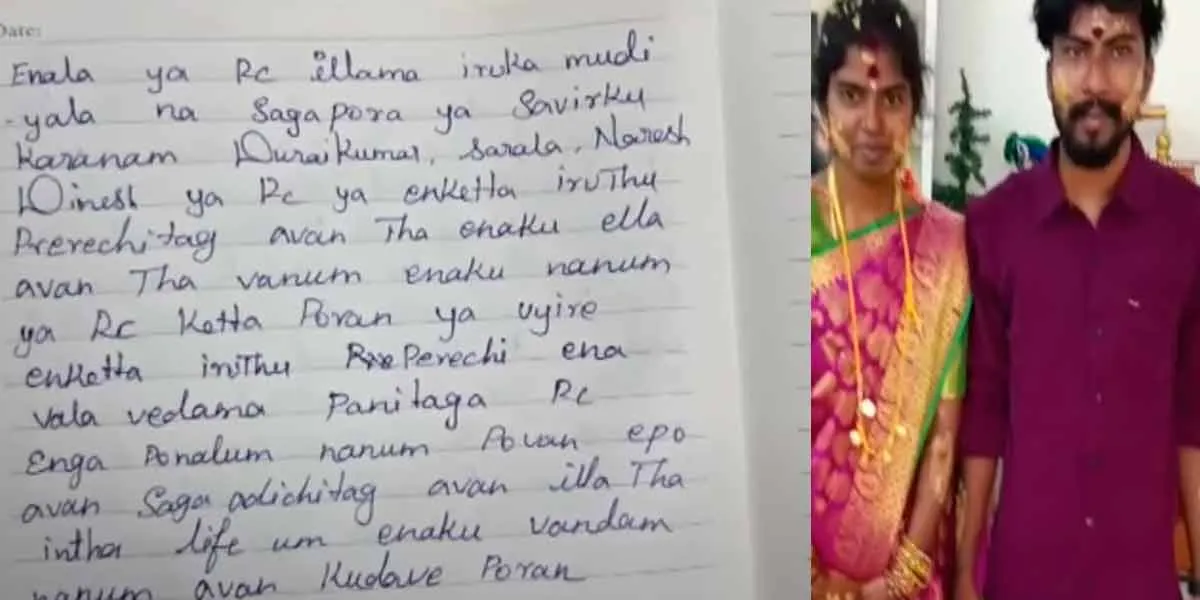 Date:
Enala ya Rc illama iruka mudi
-yala na Sagapora ya Savirku
Karanam Duraikumar, Sarala, Naresh
Dinesh ya Rc ya enketta iruthu
Prerechitag avan Tha enaku ella
avan Tha vanum enaku nanum
ya Rc Ketta Poran ya uyire
enketta iruthu Perechi ena
Vala vedama Panitaga Rc
Enga Ponalum nanum Povan epo
avan Saga adichitag avan illa Tha
intha life um enaku vandam
nanum avan Kudave Poran